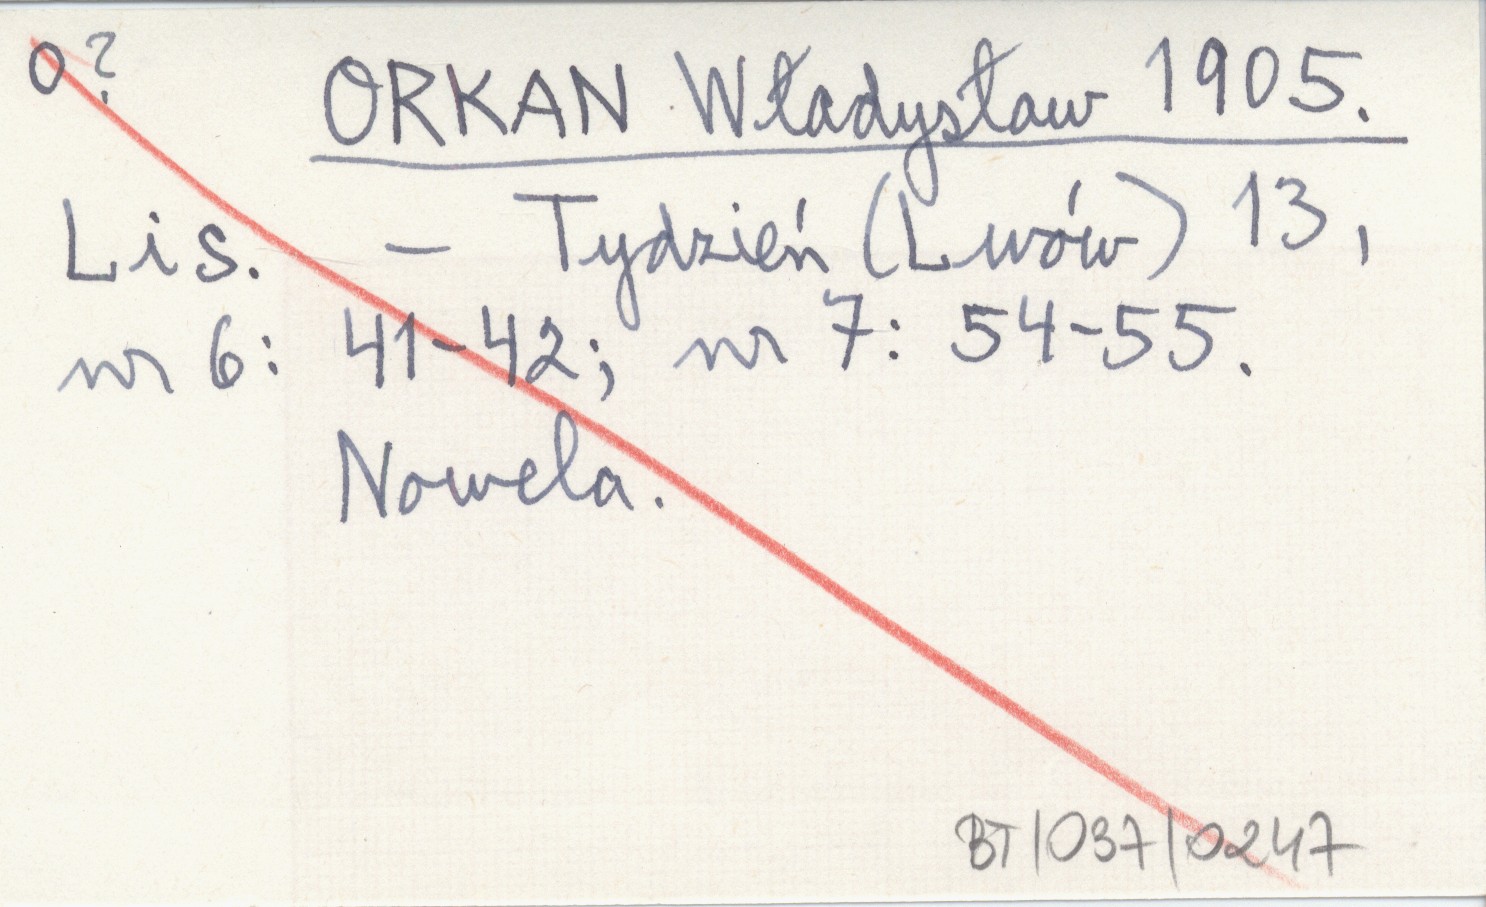 O?
ORKAN Władysław 1905.
Lis. – Tydzień (Lwów) 13,
nr 6: 41-42; nr 7: 54-55.
Nowela.
BT/037/0247